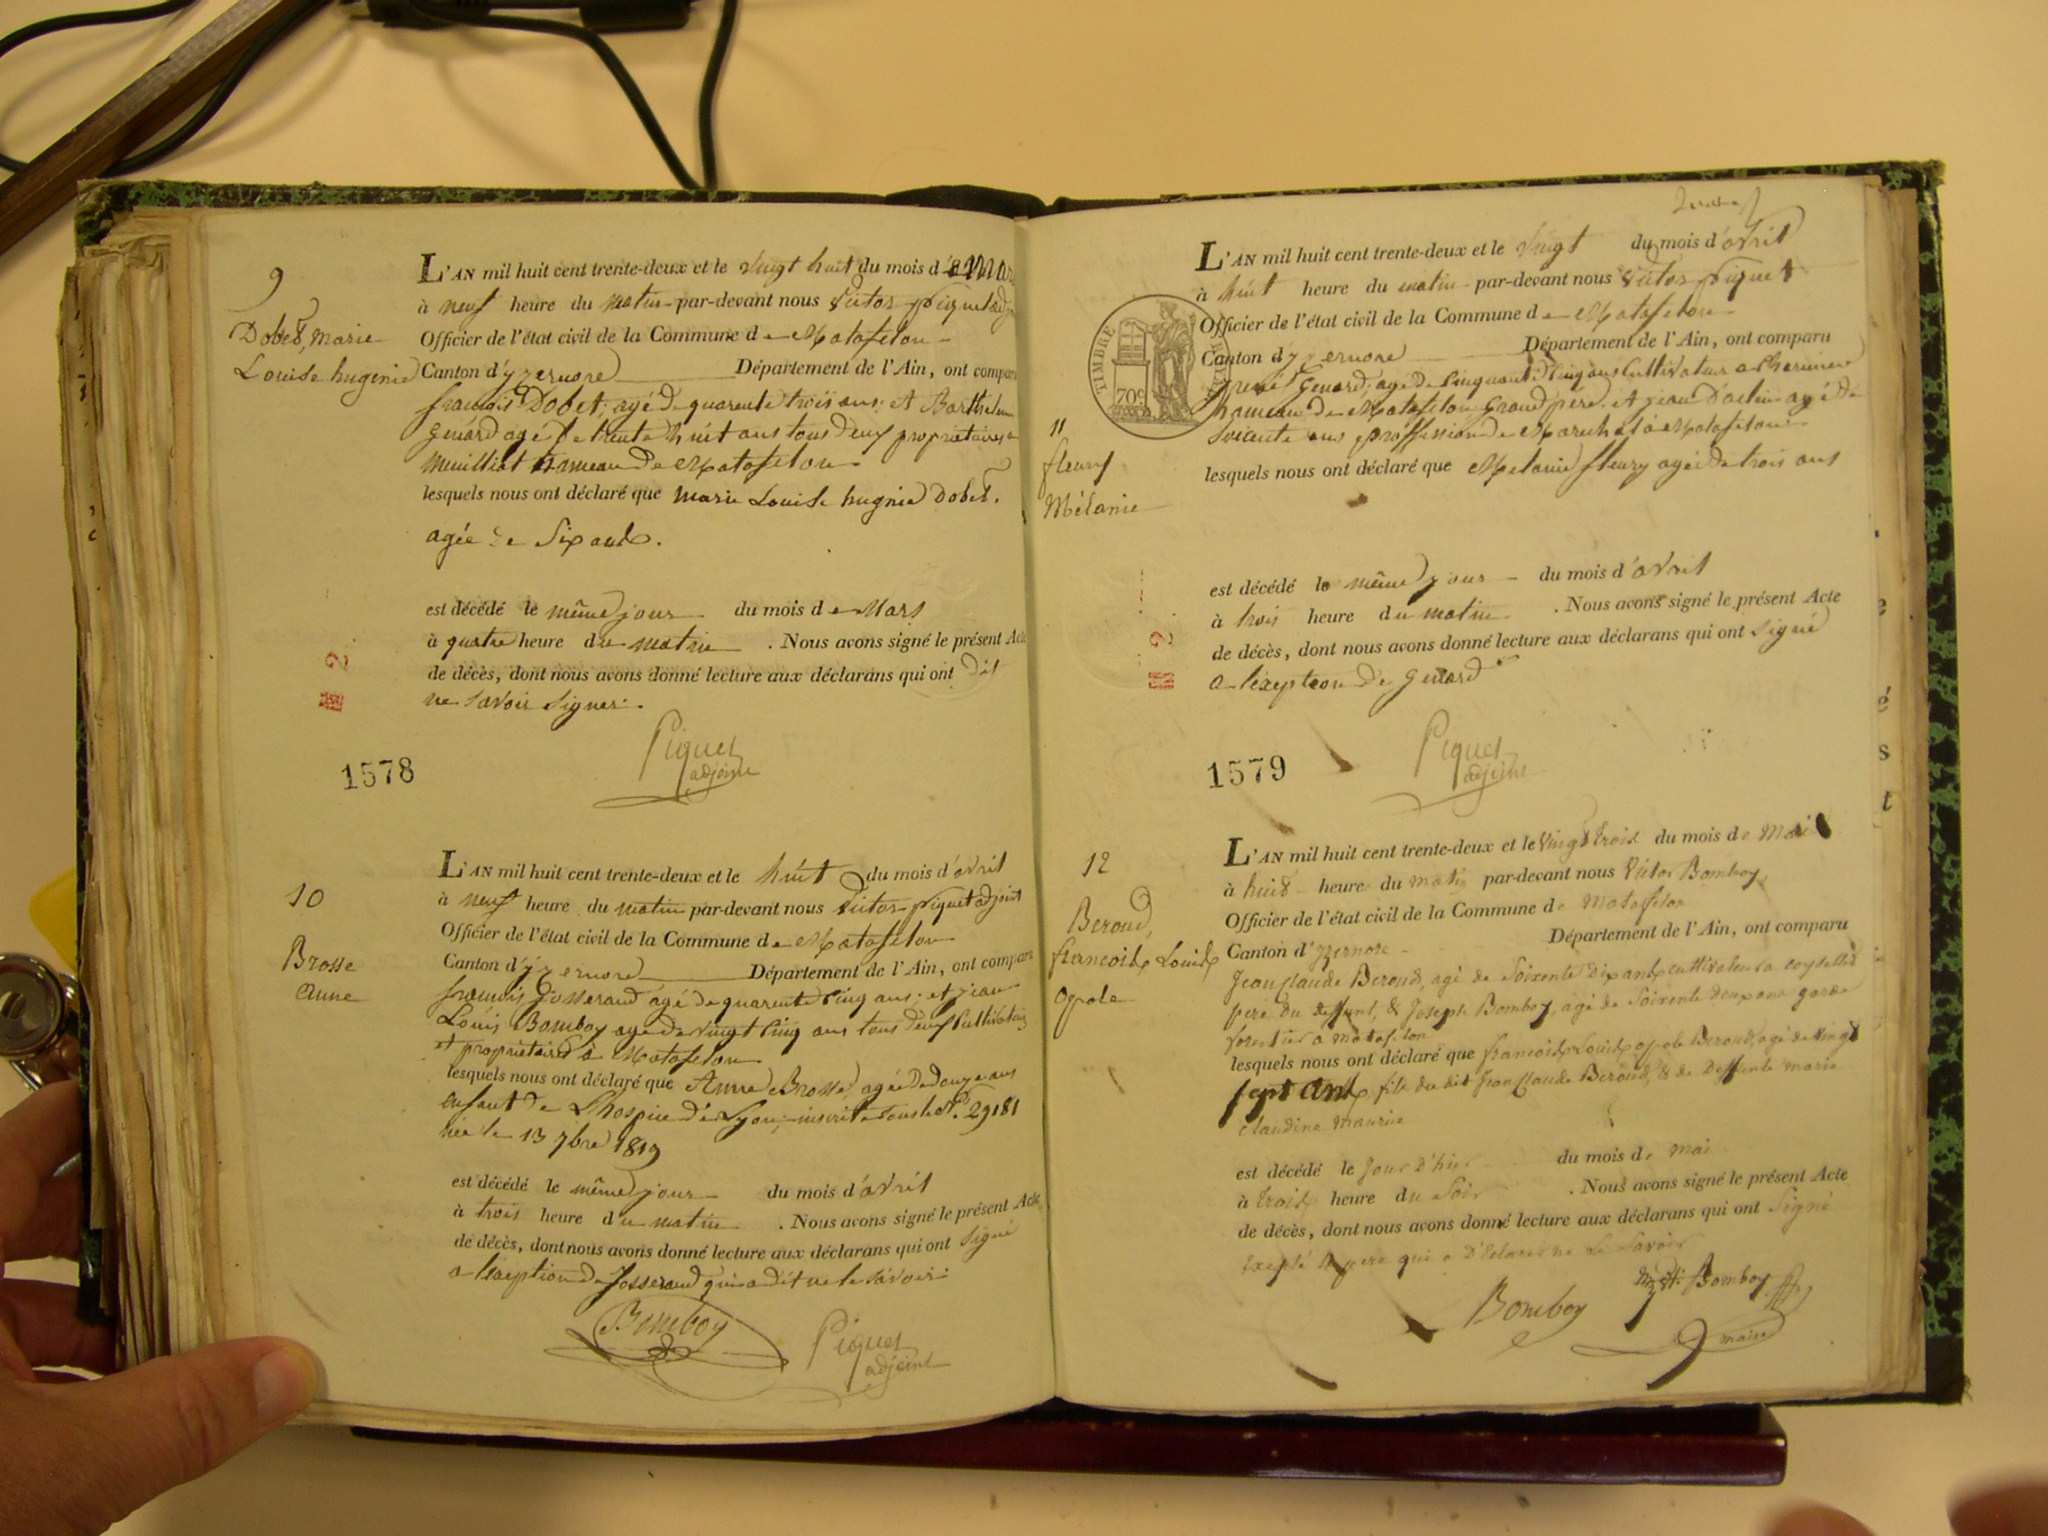 9
Dobet, Marie
Louise hugenie
L'AN mil huit cent trente-deux et le vingt huit du mois de Mars
à neuf heure du matin par-devant nous Victor piquet adj
Officier de l'état civil de la Commune de Matafelon
Canton d'yzernore Département de l'Ain, ont comparu
françois Dobet, agé de quarente trois ans, et Barthelem
Gvard agé de trente huit ans tous deux propriétaires a
hameau de Matafelon
lesquels nous ont déclaré que marie Louise hugnie Dobet.
agée de Six ans.
est décédé le même jour du mois de Mars
à quatre heure du matin . Nous avons signé le présent Acte
de décès, dont nous avons donné lecture aux déclarans qui ont dit
ne savoir signer.
Piquet
adjoint
1578
10
Brosse
anne
L'AN mil huit cent trente-deux et le huit du mois d'avril
à neuf heure du matin par-devant nous Victor piquet adjoint
Officier de l'état civil de la Commune de Matafelon
Canton d'yzernore Département de l'Ain, ont comparu
françois Josserand agé de quarente cinq ans, et jean
Louis Bomboy agé de vingt cinq ans tous deux Cultivateurs
et propriétaires à Matafelon
lesquels nous ont déclaré que Anne Brosse, agée de douze ans
enfant de L'hospice de Lyon, inscrite sous le N° 29181
née le 13 7bre 1819
est décédé le même jour du mois d'avril
à trois heure du matin . Nous avons signé le présent Acte
de décès, dont nous avons donné lecture aux déclarans qui ont signé
a lexeption de Josserand qui a dit ne le savoir.
Bomboy
Piquet
adjoint
TIMBRE
70c
11
fleury
Mélanie
L'AN mil huit cent trente-deux et le vingt du mois d'avril
à huit heure du matin par-devant nous Victor piquet
Officier de l'état civil de la Commune de Matafelon
Canton d'yzernore Département de l'Ain, ont comparu
agé de cinquante cinq ans Cultivateur a
hameau de Matafelon Grand pere, et jean agé de
Soixante ans proffession de Marechal à Matafelon
lesquels nous ont déclaré que Melanie fleury agée de trois ans
est décédé le même jour du mois d'avril
à trois heure du matin . Nous avons signé le présent Acte
de décès, dont nous avons donné lecture aux déclarans qui ont signé
a lexeption de
Piquet
adjoint
1579
12
Beroud,
francois Louis
opole
L'AN mil huit cent trente-deux et le vingt trois du mois de Mai
à huit heure du matin par-devant nous Victor Bomboy,
Officier de l'état civil de la Commune de Matafelon
Canton d'yzernore Département de l'Ain, ont comparu
Jean Claude Beroud, agé de Soixente Dix ans cultivateur a
pere du deffunt, & Joseph Bomboy, agé de Soixente deux ans garde
forestier a matafelon
lesquels nous ont déclaré que francois Louis opole Beroud, agé de vingt
sept ans, fils du dit Jean Claude Beroud, & de Deffunte marie
claudine
est décédé le Jour D'hier du mois de mai
à trois heure du Soir . Nous avons signé le présent Acte
de décès, dont nous avons donné lecture aux déclarans qui ont Signé
Excepté le pere qui a Déclaré ne Le Savoir
Bomboy
Bomboy
maire